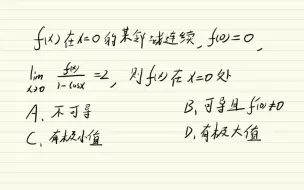 f(x)在x=0的某邻域连续，f(0)=0，
lim x→0 f(x)/(1-cosx) =2，则f(x)在x=0处
A、不可导 B、可导且f'(0)≠0
C、有极小值 D、有极大值